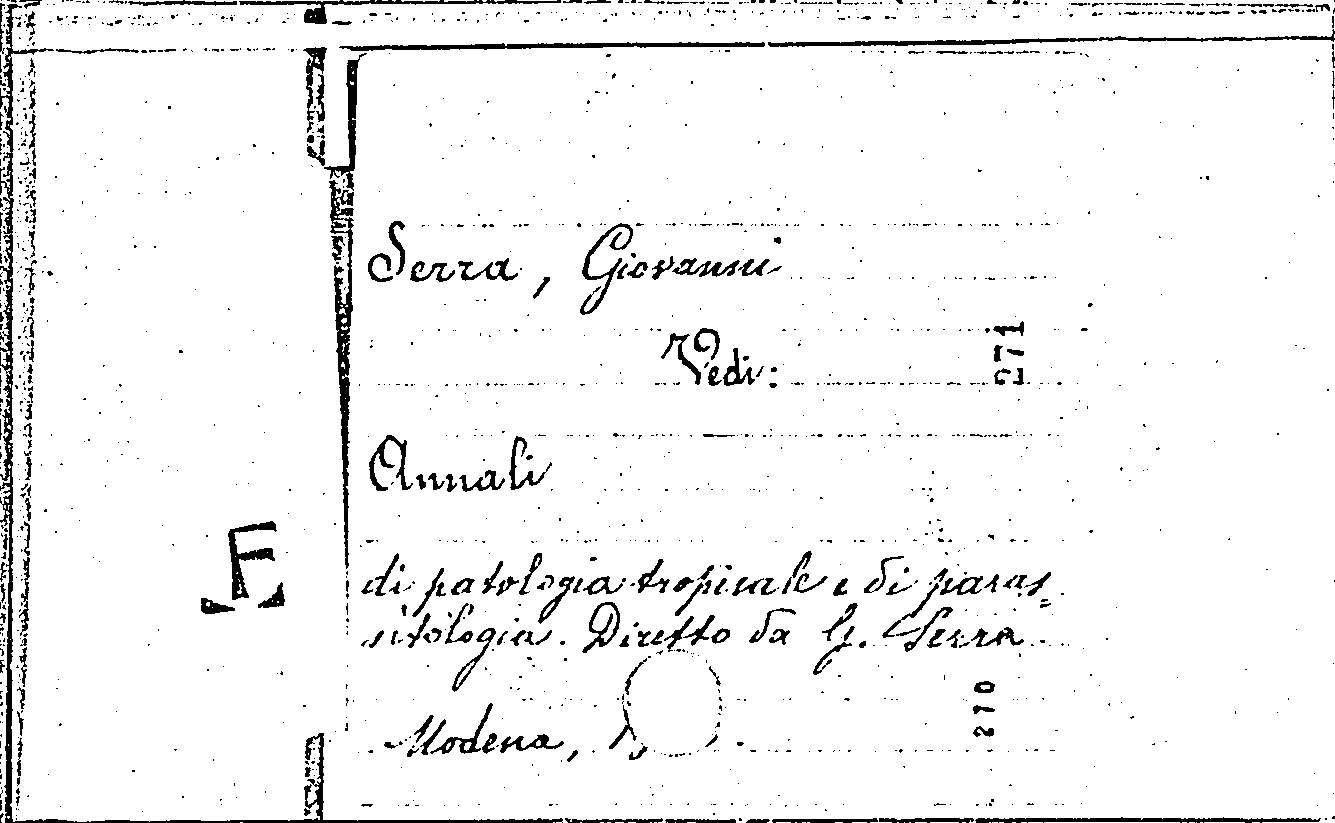 Serra, Giovanni
Vedi:
271
Annali
di patologia tropicale e di paras=
sitologia. Diretto da G. Serra
270
Modena, 1